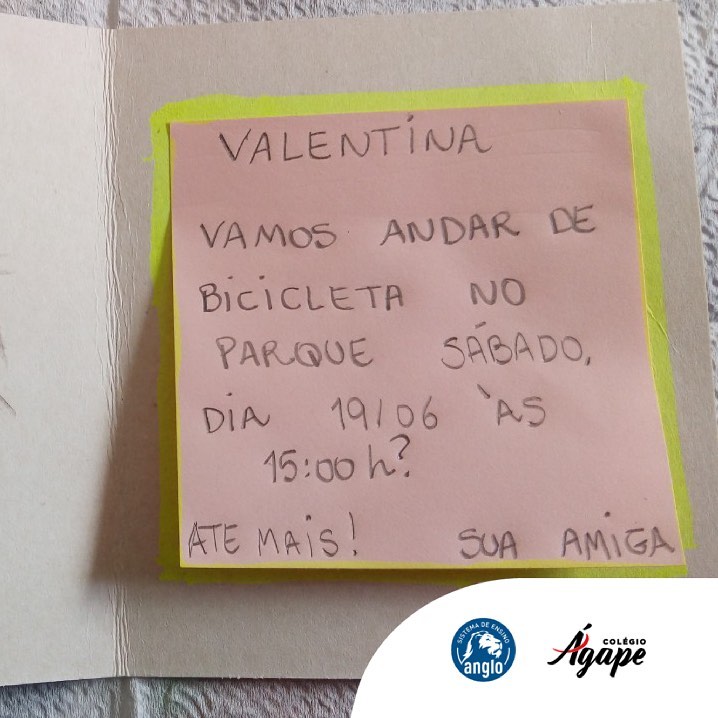 VALENTINA
VAMOS ANDAR DE
BICICLETA NO
PARQUE SÁBADO,
DIA 19/06 ÀS
15:00 h?
ATE MAIS! SUA AMIGA
SISTEMA DE ENSINO
anglo
COLÉGIO
Ágape